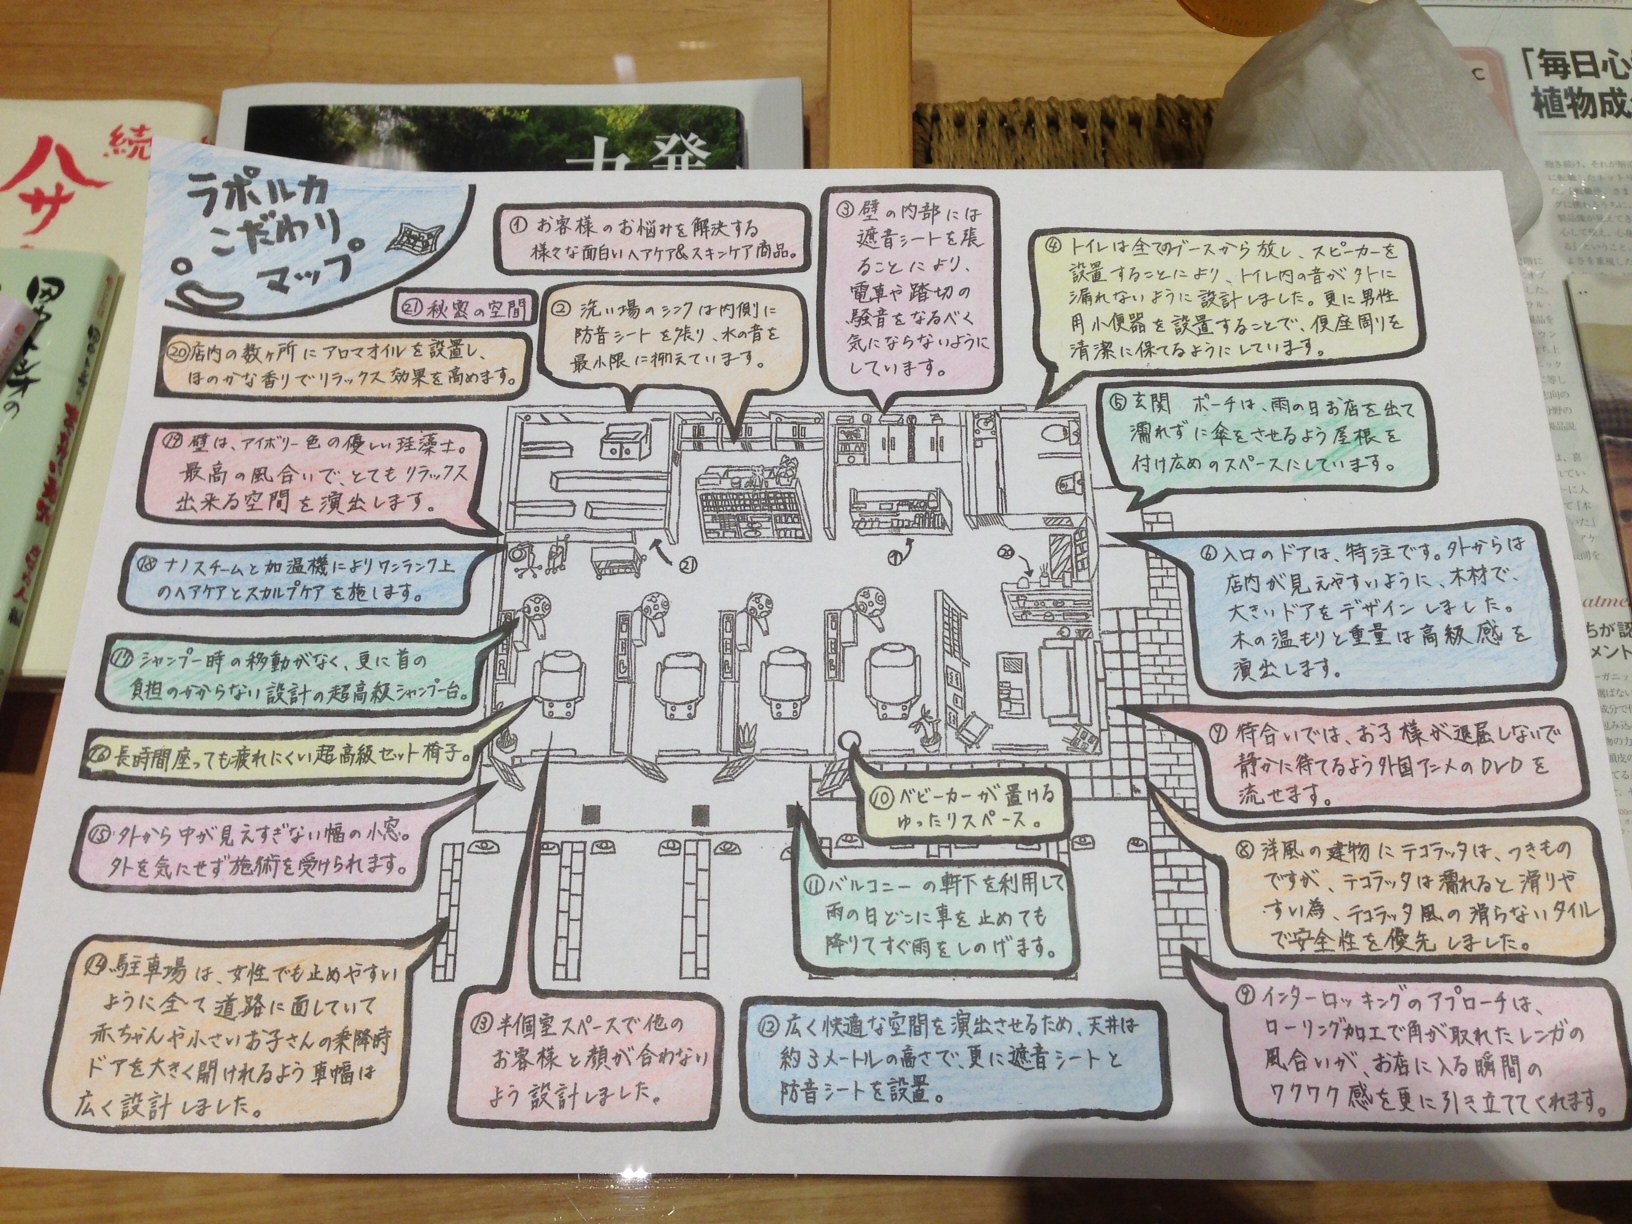 ラポルカ
こだわり
マップ
① お客様のお悩みを解決する
様々な面白いヘアケア&スキンケア商品。
② 洗い場のシンクは内側に
防音シートを張り、水の音を
最小限に抑えています。
③ 壁の内部には
遮音シートを張
ることにより、
電車や踏切の
騒音をなるべく
気にならないように
しています。
④ トイレは全てのブースから放し、スピーカーを
設置することにより、トイレ内の音が外に
漏れないように設計しました。更に男性
用小便器を設置することで、便座周りを
清潔に保てるようにしています。
⑤ 玄関 ポーチは、雨の日お店を出て
濡れずに傘をさせるよう屋根を
付け広めのスペースにしています。
⑥ 入口のドアは、特注です。外からは
店内が見えやすいように、木材で、
大きいドアをデザインしました。
木の温もりと重量は高級感を
演出します。
⑦ 待合いでは、お子様が退屈しないで
静かに待てるよう外国アニメのDVDを
流せます。
⑧ 洋風の建物にテコラッタは、つきもの
ですが、テコラッタは濡れると滑りや
すい為、テコラッタ風の滑らないタイル
で安全性を優先しました。
⑨ インターロッキングのアプローチは、
ローリング加工で角が取れたレンガの
風合いが、お店に入る瞬間の
ワクワク感を更に引き立ててくれます。
⑩ ベビーカーが置ける
ゆったりスペース。
⑪ バルコニーの軒下を利用して
雨の日どこに車を止めても
降りてすぐ雨をしのげます。
⑫ 広く快適な空間を演出させるため、天井は
約3メートルの高さで、更に遮音シートと
防音シートを設置。
⑬ 半個室スペースで他の
お客様と顔が合わない
よう設計しました。
⑭ 駐車場は、女性でも止めやすい
ように全て道路に面していて
赤ちゃんや小さいお子さんの乗降時
ドアを大きく開けれるよう車幅は
広く設計しました。
⑮ 外から中が見えすぎない幅の小窓。
外を気にせず施術を受けられます。
⑯ 長時間座っても疲れにくい超高級セット椅子。
⑰ シャンプー時の移動がなく、更に首の
負担のかからない設計の超高級シャンプー台。
⑱ ナノスチームと加温機によりワンランク上
のヘアケアとスカルプケアを施します。
⑲ 壁は、アイボリー色の優しい珪藻土。
最高の風合いで、とてもリラックス
出来る空間を演出します。
⑳ 店内の数ヶ所にアロマオイルを設置し、
ほのかな香りでリラックス効果を高めます。
㉑ 秘密の空間
㉑
①
⑳
続
ハサ
「毎日心
植物成
C